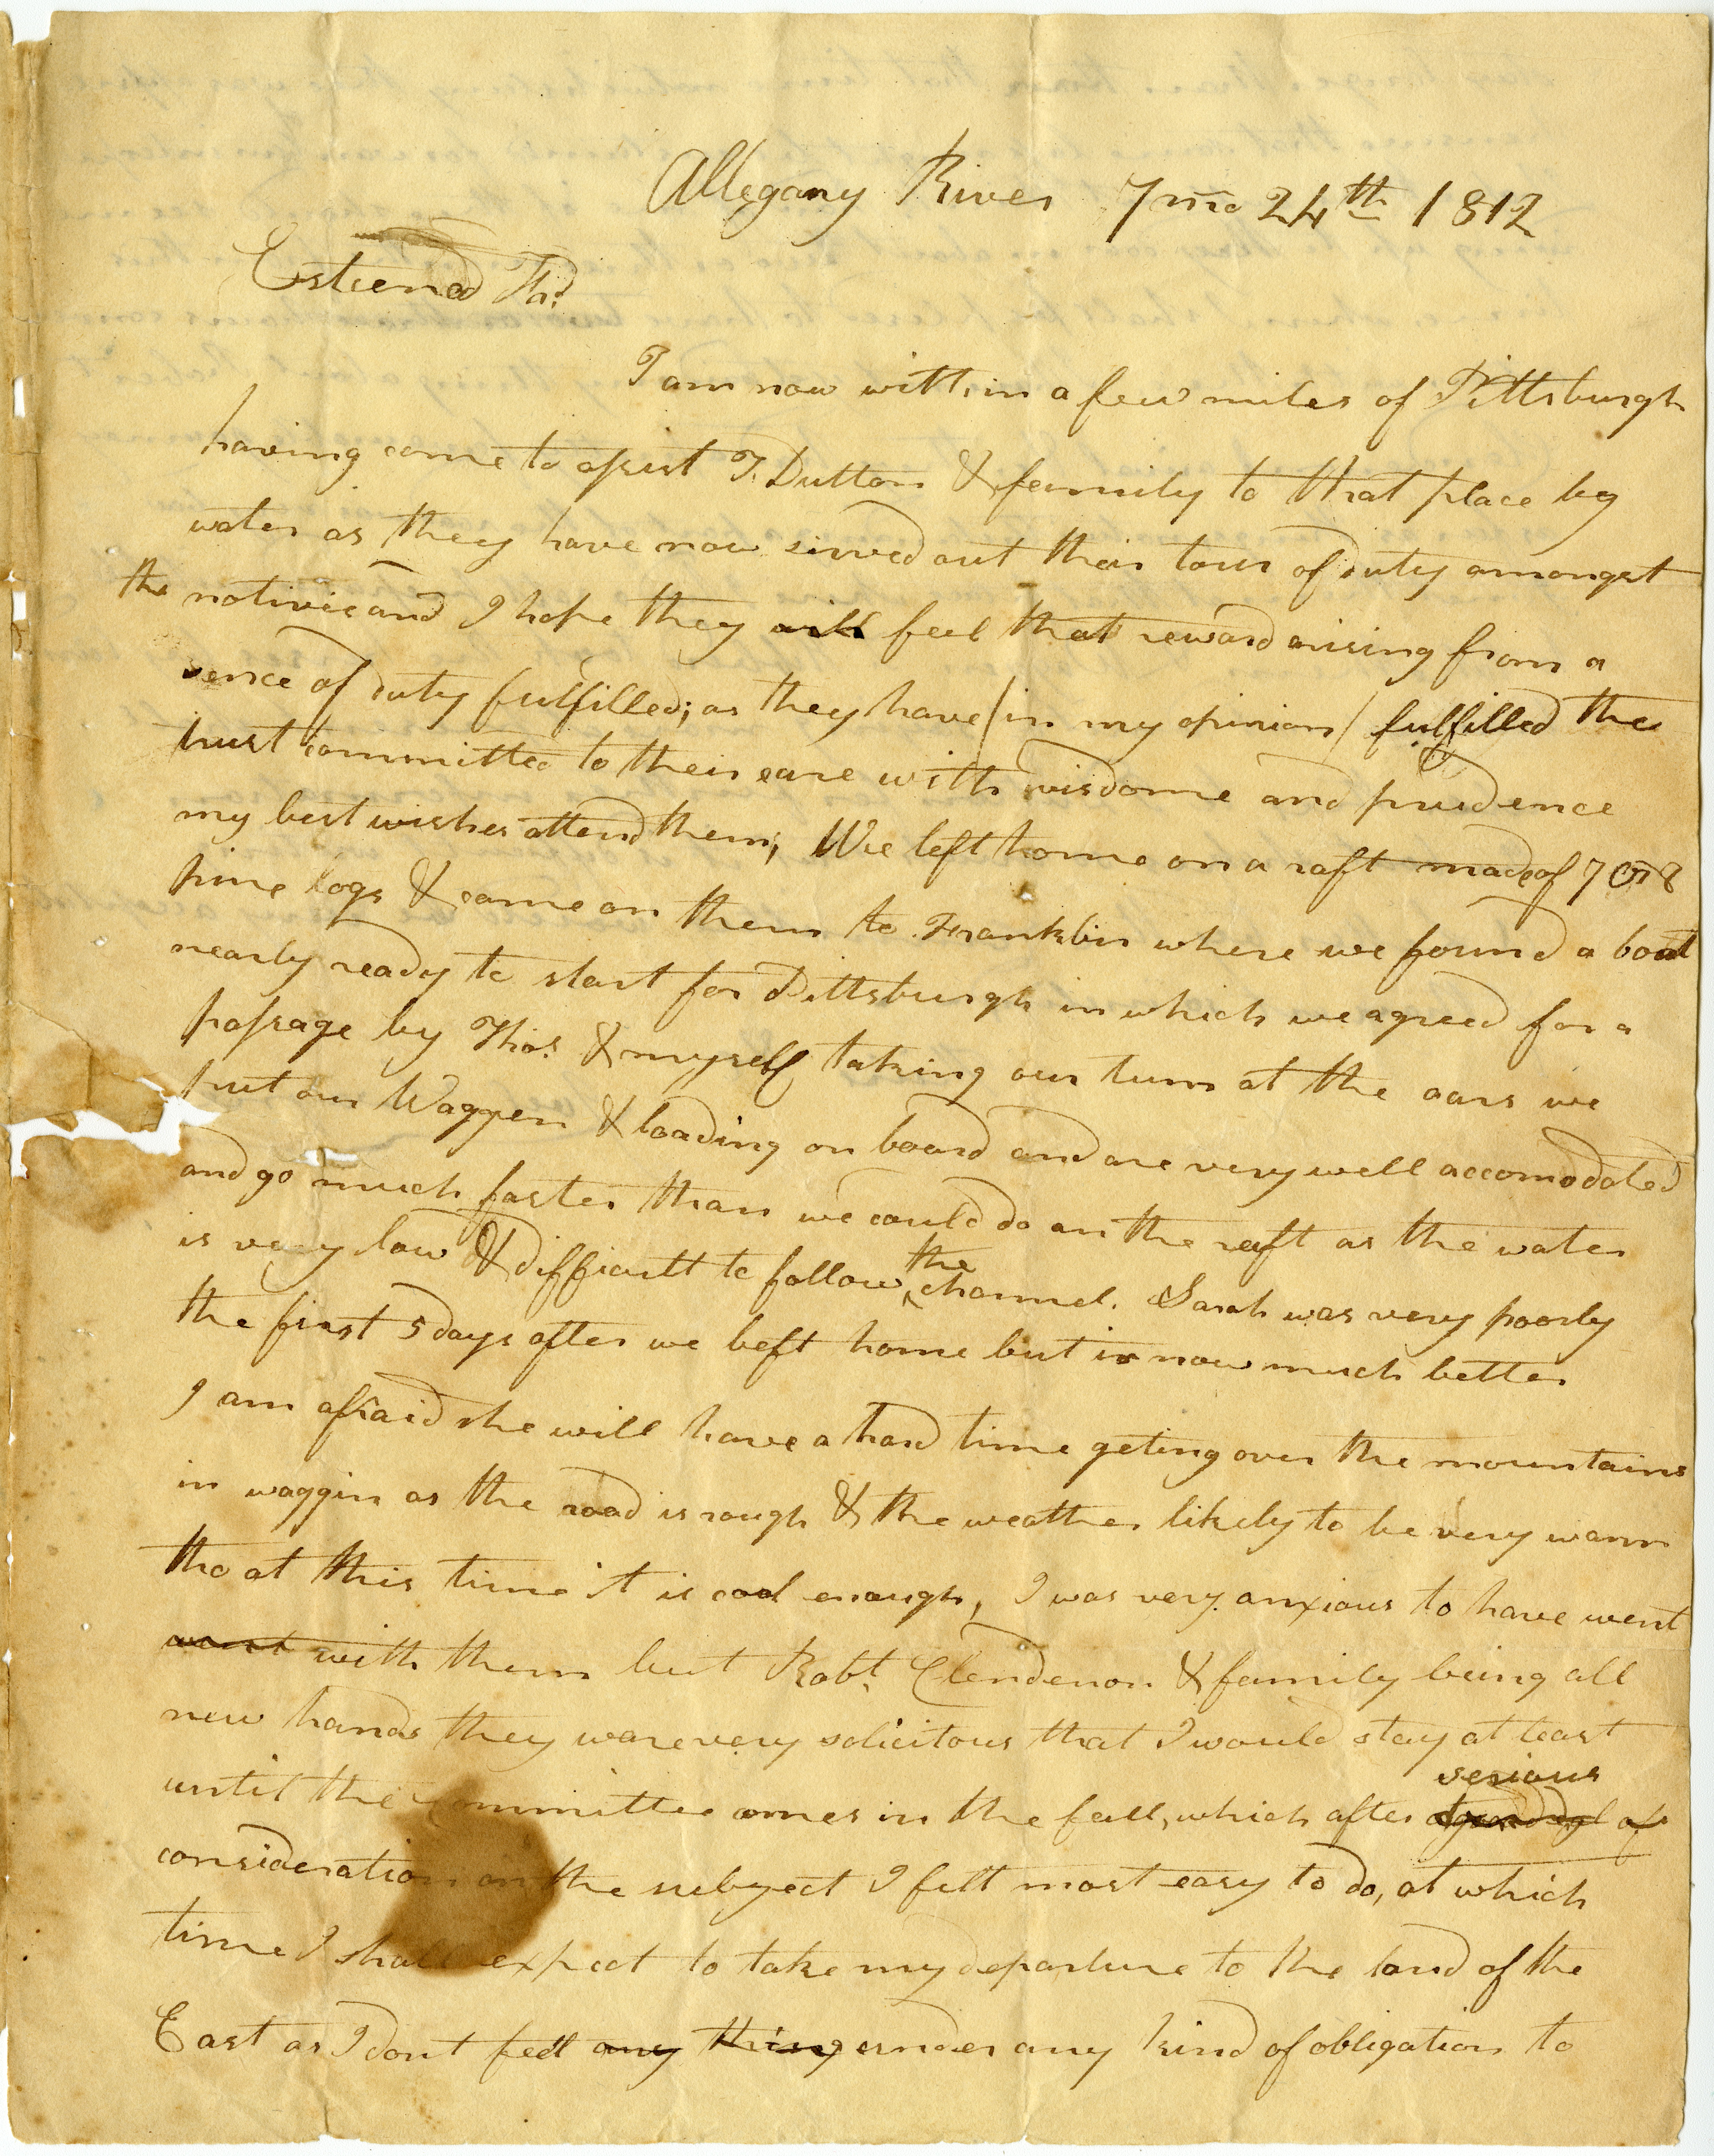 Allegany River 7mo 24th 1812
Esteemed Frd
I am now within a few miles of Pittsburgh
having come to assist T. Dutton & family to that place by
water as they have now served out their tour of duty amongst
the notives and I hope they will feel that reward arising from a
sence of duty fulfilled; as they have (in my opinion) fulfilled the
trust committed to their care with wisdome and prudence
my best wishes attend them; We left home on a raft made of 7 or 8
pine logs & came on them to Franklin where we found a boat
nearly ready to start for Pittsburgh in which we agreed for a
passage by Thos. & myself taking our turn at the oars we
put our Waggen & loading on board and are very well accomodated
and go much faster than we could do on the raft as the water
is very low & difficult to follow the channel. Sarah was very poorly
the first 5 days after we left home but is now much better
I am afraid she will have a hard time geting over the mountains
in waggin as the road is rough & the weather likely to be very warm
tho at this time it is cool enough, I was very anxious to have went
went with them but Robt. Clendenon & family being all
new hands they ware very solicitous that I would stay at least
until the committee comes in the fall, which after a good deal of serious
consideration on the subject I felt most easy to do, at which
time I shall expect to take my departure to the land of the
East as I dont feel any thing under any kind of obligation to